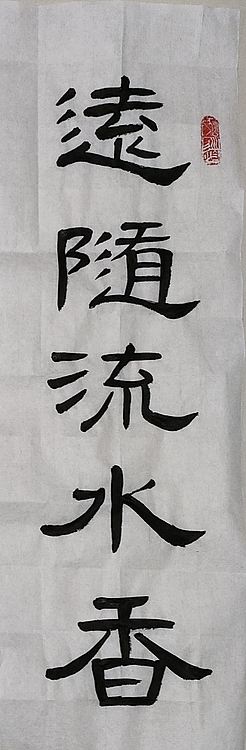 遠隨流水香